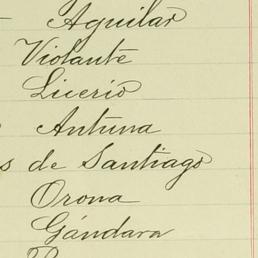 Aguilar
Violante
Licerio
Antuna
s de Santiago
Orona
Gándara